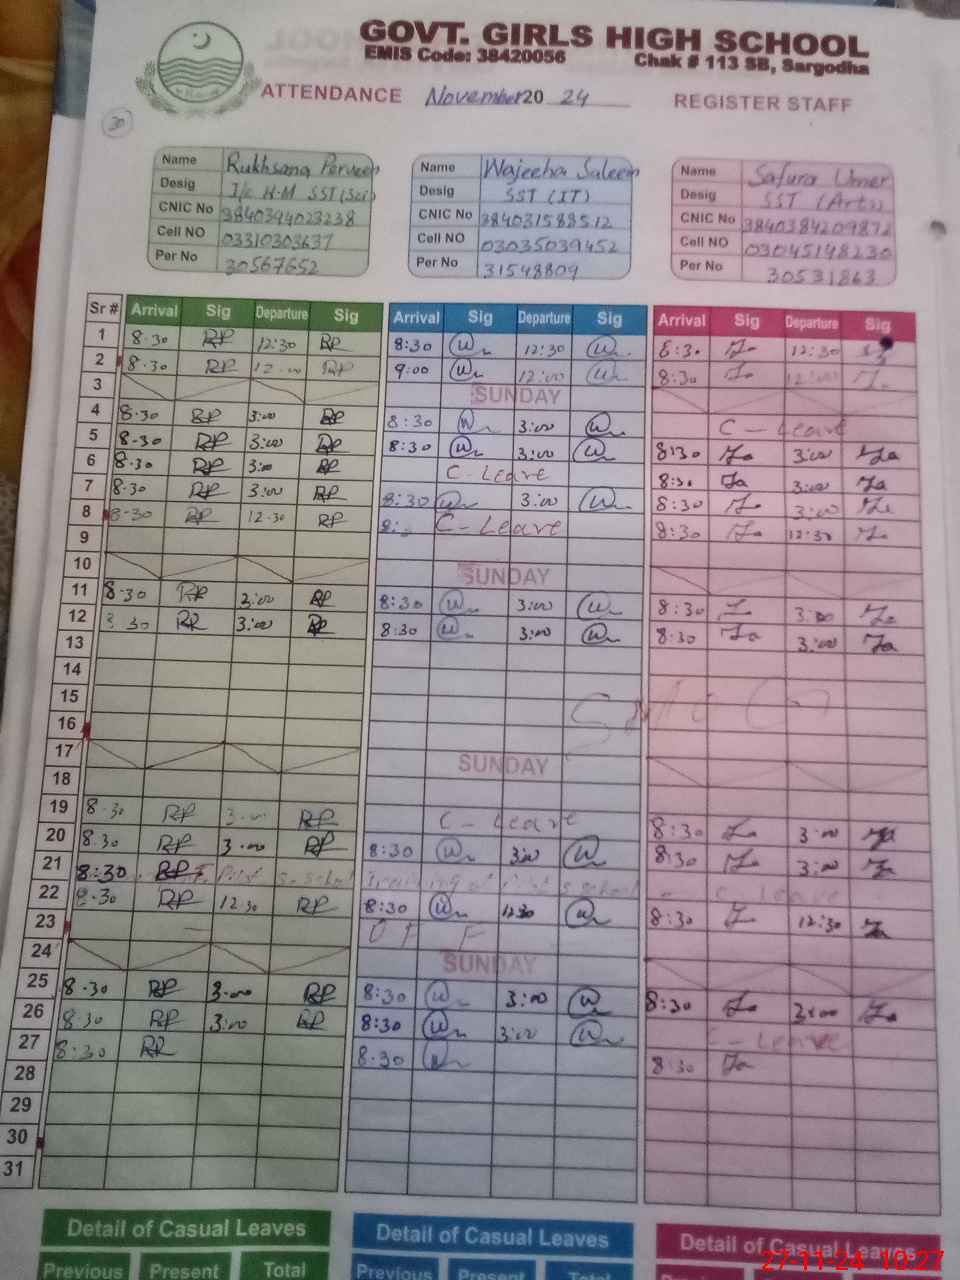 GOVT. GIRLS HIGH SCHOOL
EMIS Code: 38420056 Chak # 113 SB, Sargodha
ATTENDANCE November 20 24 REGISTER STAFF
30
Name Rukhsana Perveen Name Wajeeha Saleem Name Safura Umer
Desig I/c H.M SST (Sci) Desig SST (IT) Desig SST (Arts)
CNIC No 3840394023238 CNIC No 384031588512 CNIC No 3840384209872
Cell NO 03310303637 Cell NO 03035039452 Cell NO 03045148230
Per No 30567652 Per No 31548809 Per No 30531863
Sr # Arrival Sig Departure Sig Arrival Sig Departure Sig Arrival Sig Departure Sig
1 8.30 RP 12:30 RP 8:30 12:30 8:30 12:30
2 8.30 RP RP 9:00 12:00 8:30 12:00
3 SUNDAY
4 8.30 RP 3:00 RP 8:30 3:00 C-Leave
5 8.30 RP 3:00 RP 8:30 3:00 8:30 3:00
6 8.30 RP 3:00 RP C-Leave 8:30 3:00
7 8.30 RP 3:00 RP 8:30 3:00 8:30 3:00
8 8.30 RP 12.30 RP C-Leave 8:30 12:30
9
10 SUNDAY
11 8.30 RP 3:00 RP 8:30 3:00 8:30 3:00
12 RP 3:00 RP 8:30 3:00 8:30 3:00
13
14
15 SMOG
16
17 SUNDAY
18
19 8.30 RP RP C-Leave 8:30 3:00
20 8.30 RP 3.00 RP 8:30 3:00 8:30 3:00
21 8:30 RP Training of school C-Leave
22 8.30 RP 12.30 RP 8:30 12:30 8:30 12:30
23 OFF
24 SUNDAY
25 8.30 RP 3.00 RP 8:30 3:00 8:30 3:00
26 8.30 RP 3:00 RP 8:30 3:00 C-Leave
27 8:30 RP 8.30 8:30
28
29
30
31
Detail of Casual Leaves Detail of Casual Leaves Detail of Casual Leaves
Previous Present Total Previous Present Total
27-11-24 10:27